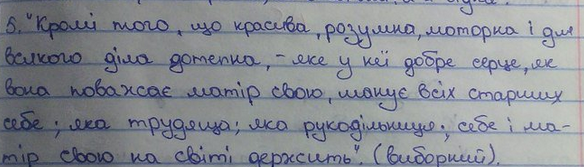 5. "Кромі того, що красива, розумна, моторна і для
всякого діла дотепна, - яке у неї добре серце, як
вона поважає матір свою, шанує всіх старших
себе; яка трудяща; яка рукодільниця; себе і ма-
тір свою на світі держить". (виборний).